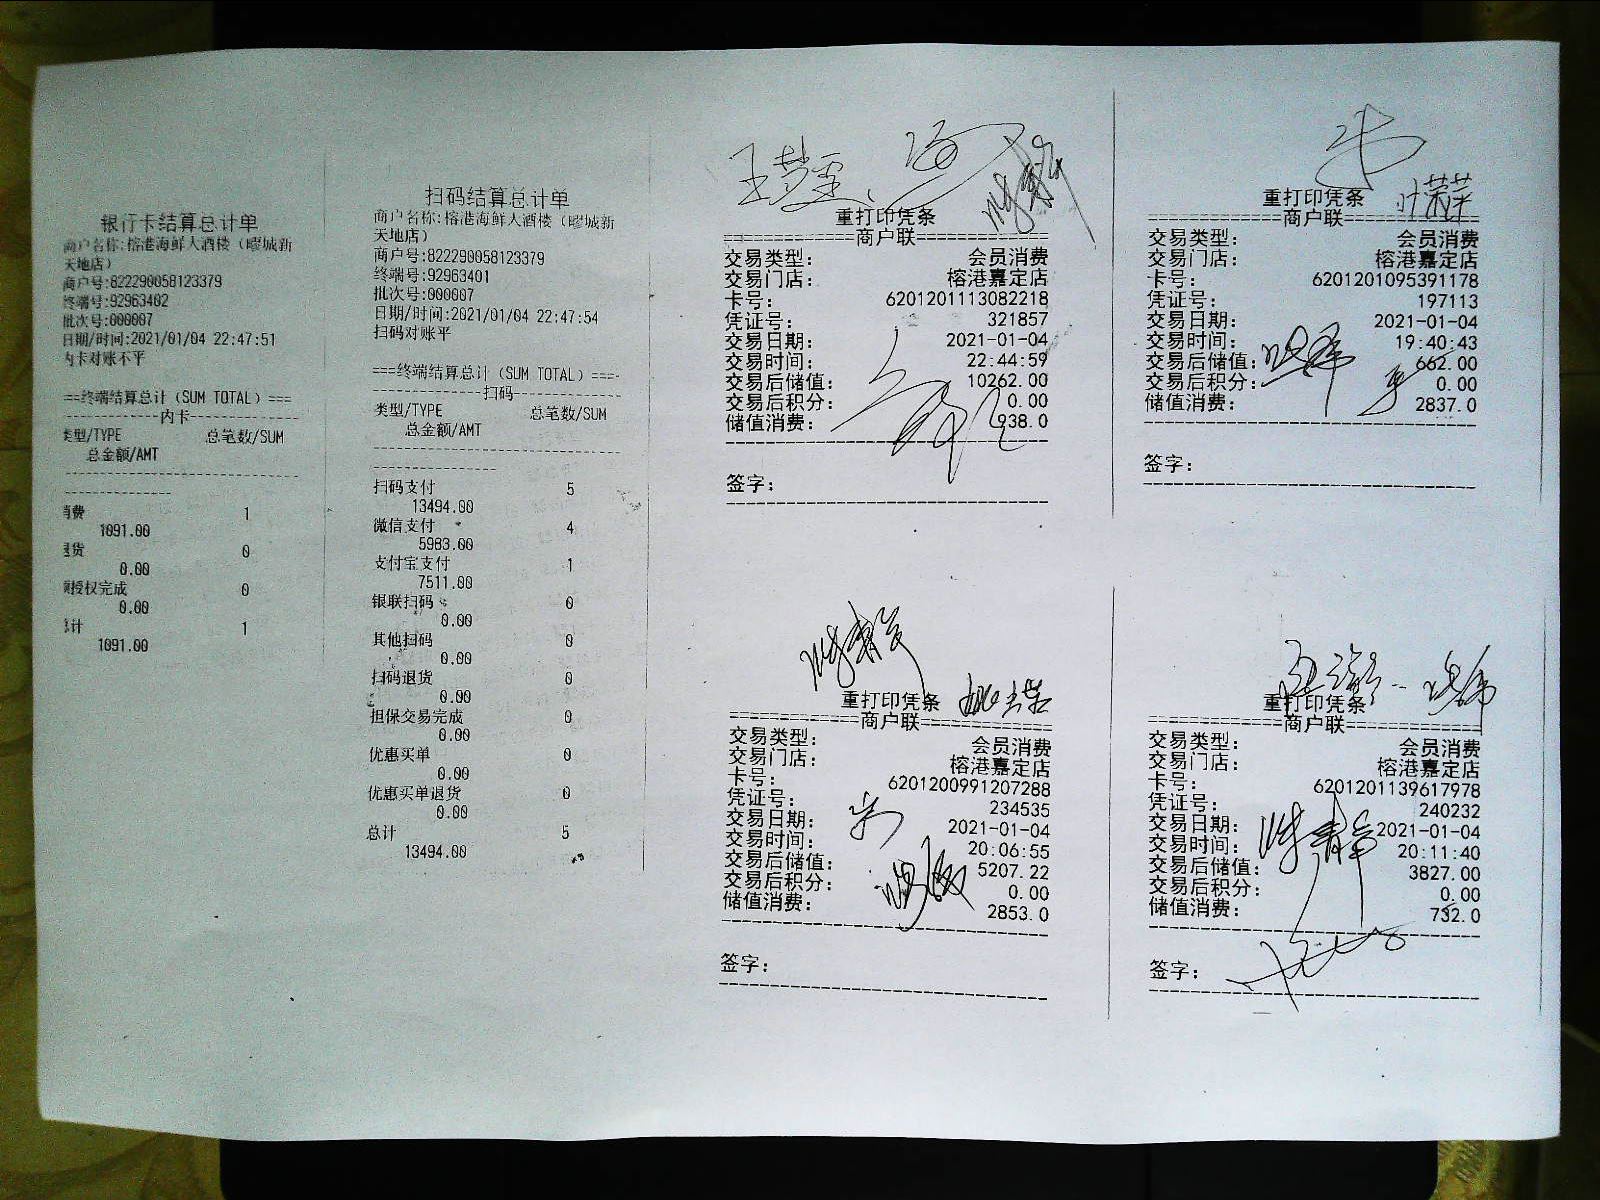 银行卡结算总计单
商户名称:榕港海鲜大酒楼（疁城新
天地店）
商户号:822290058123379
终端号:92963402
批次号:000007
日期/时间:2021/01/04 22:47:51
内卡对账不平
==终端结算总计（SUM TOTAL）===
内卡
类型/TYPE 总笔数/SUM
总金额/AMT
消费 1
1091.00
退货 0
0.00
授权完成 0
0.00
总计 1
1091.00
扫码结算总计单
商户名称:榕港海鲜大酒楼（疁城新
天地店）
商户号:822290058123379
终端号:92963401
批次号:000007
日期/时间:2021/01/04 22:47:54
扫码对账平
===终端结算总计（SUM TOTAL）===
扫码
类型/TYPE 总笔数/SUM
总金额/AMT
扫码支付 5
13494.00
微信支付 4
5983.00
支付宝支付 1
7511.00
银联扫码 0
0.00
其他扫码 0
0.00
扫码退货 0
0.00
担保交易完成 0
0.00
优惠买单 0
0.00
优惠买单退货 0
0.00
总计 5
13494.00
重打印凭条
商户联
交易类型: 会员消费
交易门店: 榕港嘉定店
卡号: 6201201113082218
凭证号: 321857
交易日期: 2021-01-04
交易时间: 22:44:59
交易后储值: 10262.00
交易后积分: 0.00
储值消费: 938.0
签字:
重打印凭条
商户联
交易类型: 会员消费
交易门店: 榕港嘉定店
卡号: 6201201095391178
凭证号: 197113
交易日期: 2021-01-04
交易时间: 19:40:43
交易后储值: 662.00
交易后积分: 0.00
储值消费: 2837.0
签字:
重打印凭条
商户联
交易类型: 会员消费
交易门店: 榕港嘉定店
卡号: 6201200991207288
凭证号: 234535
交易日期: 2021-01-04
交易时间: 20:06:55
交易后储值: 5207.22
交易后积分: 0.00
储值消费: 2853.0
签字:
重打印凭条
商户联
交易类型: 会员消费
交易门店: 榕港嘉定店
卡号: 6201201139617978
凭证号: 240232
交易日期: 2021-01-04
交易时间: 20:11:40
交易后储值: 3827.00
交易后积分: 0.00
储值消费: 732.0
签字: